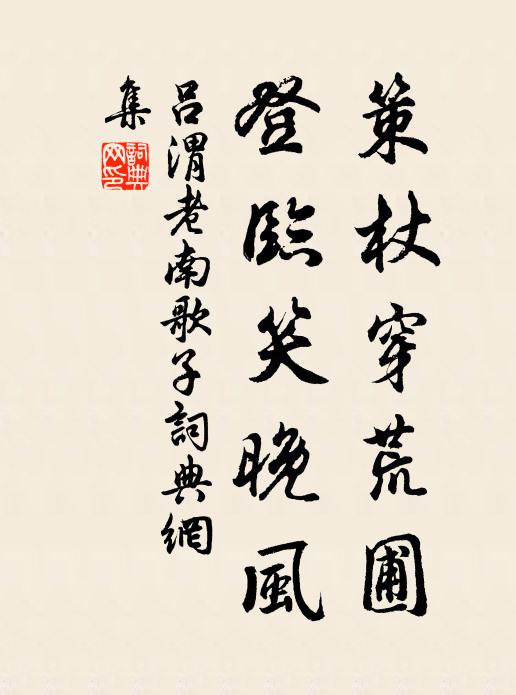 策杖穿荒圃
登臨笑晚風
呂渭老南歌子詞典網
集
詞典網印